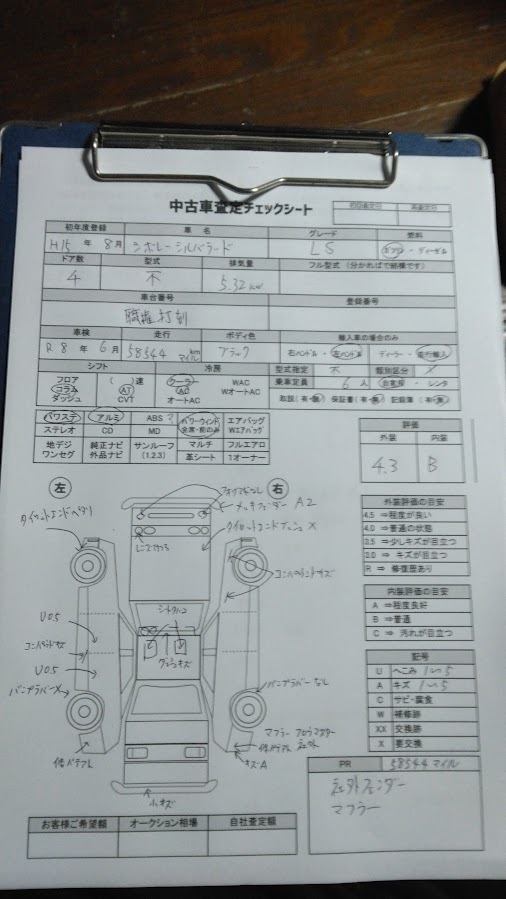 中古車査定チェックシート
初回査定日 再査定日
初年度登録 車 名 グレード 燃料
H15 年 8月 シボレーシルバラード LS ガソリン・ディーゼル
ドア数 型式 排気量 フル型式 (分かればで結構です)
4 不 5.32
車台番号 登録番号
職権打刻
車検 走行 ボディ色 輸入車の場合のみ
R8 年 6月 58344 km マイル ブラック 右ハンドル・左ハンドル ディーラー・並行輸入
シフト 冷房 型式指定 不 類別区分
フロア ( )速 クーラー WAC 乗車定員 6人 自家用・レンタ
コラム AT AC WオートAC
ダッシュ CVT オートAC 取説 (有・無) 保証書 (有・無) 記録簿 (有・無)
パワステ アルミ ABS ? パワーウインド エアバッグ
ステレオ CD MD 全席・前のみ Wエアバッグ
地デジ 純正ナビ サンルーフ マルチ フルエアロ
ワンセグ 外品ナビ (1.2.3) 革シート 1オーナー
評価
外装 内装
4.3 B
左 右
メッキフェンダー A2
外装評価の目安
4.5 ⇒程度が良い
4.0 ⇒普通の状態
3.5 ⇒少しキズが目立つ
3.0 ⇒ キズが目立つ
R ⇒ 修復歴あり
内装評価の目安
A ⇒程度良好
B ⇒普通
C ⇒ 汚れが目立つ
U0.5
U0.5
バニプラバーX
バニプラバーなし
記号
U へこみ 1〜5
A キズ 1〜5
C サビ・腐食
W 補修跡
XX 交換跡
X 要交換
マフラー フロウマスター
社外
キズA
小キズ
PR 58344マイル
社外フェンダー
マフラー
お客様ご希望額 オークション相場 自社査定額